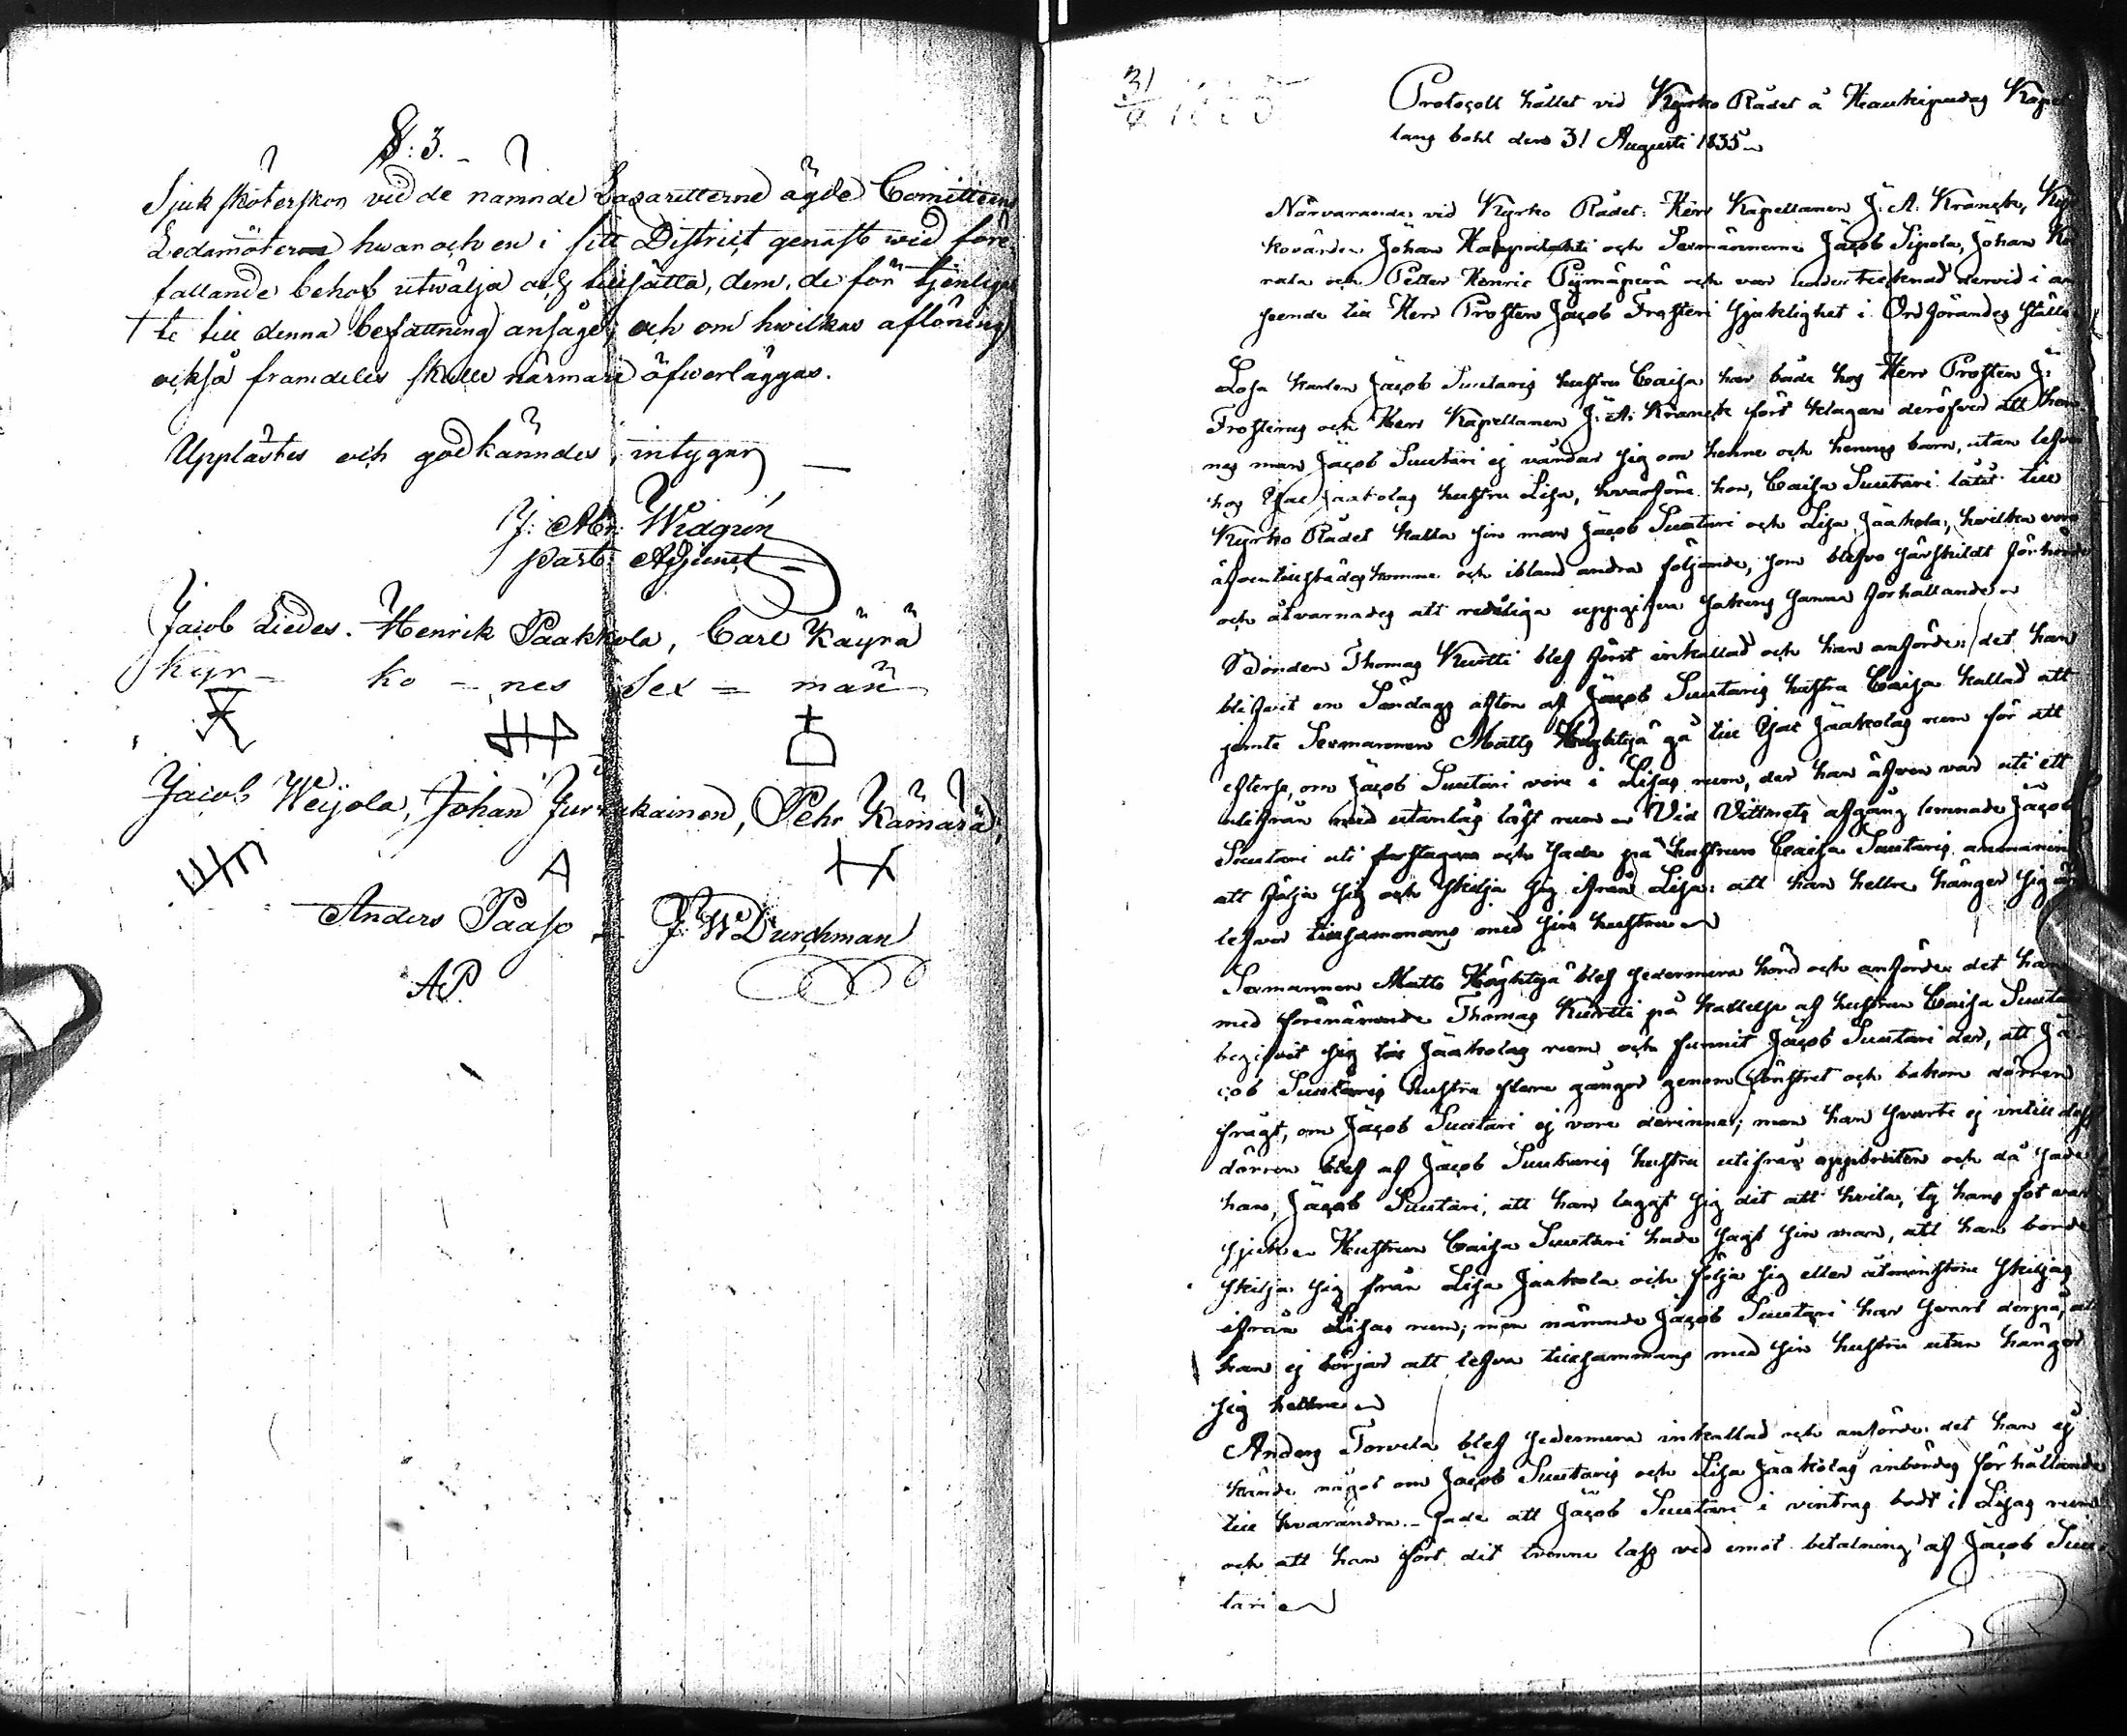 §: 3.
Sjuk sköterskor vid de nämnde Lazaretterne ägde Comitteens
Ledamöterne hwar och en i sitt District genast wid före-
fallande behof utwälja och tillsätta, dem, de för tjenligas-
te till denna befattning ansågo, och om hwilkas aflöning
också framdeles skulle närmare öfwerläggas.
Upplästes och godkänndes, intygar
J: Abr: Widgrén
Past: Adjunct
Jacob Liedes. Henrik Paakkola, Carl Käyrä
Kyr- ko-nes Sex=män
Jacob Weijola, Johan Jurvakainen, Pehr Kämärä,
Anders Paaso J: W Durchman
AP.
31/8 1835
Protocoll hållet vid Kyrko Rådet å Haukipudas Kapel-
lans bohl den 31 Augusti 1835
Närvarande vid Kyrko Rådet: Herr Kapellanen J: A: Kranck, Kyr-
kovärden Johan Haapalahti och Sexmännerne Jacob Sipola, Johan
och Petter Henric Pyymäperä och var undertecknad dervid i an-
seende till Herr Prosten Jacob Frosteri sjuklighet i Ordförandes ställe
Losa karlen Jacob Suutaris hustru Caisa har både hos Herr Prosten J:
Frosterus och Herr Kapellanen J: A: Kranck fört klagan deröfver att hen-
nes man Jacob Suutari ej vårdar sig om henne och hennes barn, utan lefver
hos Isac Jaakolas hustru Lisa, hvarföre hon, Caisa Suutari låtit till
Kyrko Rådet kalla sin man Jacob Suutari och Lisa Jaakola, hvilka voro
äfven tillstädes komne och ibland andra följande, som blefvo särskildt förhörde
och åtvarnades att redeliga uppgifva sakens sanna förhållande
Bonden Thomas Kurtti blef först inkallad och han anförde: det han
blifvit en Söndags afton af Jacob Suutaris hustru Caisa kallad att
jemte Sexmannen Matts gå till Isac Jaakolas rum för att
efterse, om Jacob Suutari vore i Lisas rum, der han äfven var uti ett
utifrån med utanlås låst rum Vid Vittnets afgång lemnade Jacob
Suutari uti och sade på hustrun Caisa Suutaris anmaning
att följa sig och skilja sig ifrån Lisa: att han hellre hänger sig än
lefver tillsammans med sin hustru
Sexmannen Matts blef sedermera hörd och anförde: det han
med förenämnde Thomas Kurtti på kallelse af hustrun Caisa Suutari
begifvit sig till Jaakolas rum och funnit Jacob Suutari der, att Ja-
cob Suutaris hustru flere gånger genom fönstret och bakom dörren
frågt, om Jacob Suutari ej vore derinne; men han svarte ej intill dess
dörren blef af Jacob Suutaris hustru utifrån uppbruten och då sade
han, Jacob Suutari, att han laggt sig dit att hvila, ty hans fot var
sjuk Hustrun Caisa Suutari hade sagt sin man, att han borde
skilja sig från Lisa Jaakola och följa sig eller åtminstone skiljas
ifrån Lisas rum; men nämnde Jacob Suutari har svart derpå, att
han ej börjar att lefva tillsammans med sin hustru utan hänger
sig hellre
Anders Torvela blef sedermera inkallad och anförde: det han ej
kände något om Jacob Suutaris och Lisa Jaakolas inbördes förhållande
till hvarandra. sade att Jacob Suutari i vintras bodt i Lisas rum
och att han fört dit trenne lass ved emot betalning af Jacob Suu-
tari